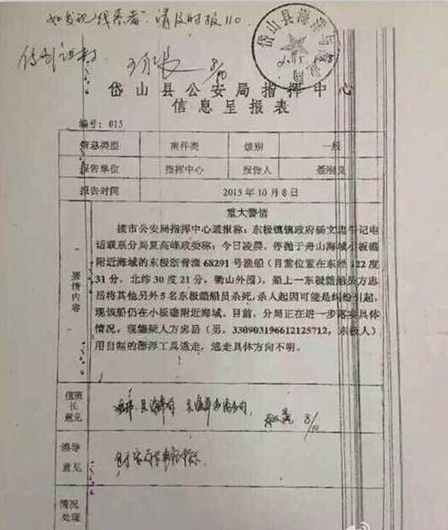 如发现"线索者"请及时报110.
8/10
岱山县海洋与
岱山县公安局指挥中心
信息呈报表
编号: 015
信息类型 案件类 级别 一般
报告单位 指挥中心 报告人
报告时间 2015年10月8日
要情内容
重大警情
接市公安局指挥中心通报称: 东极镇镇政府杨文忠书记电
话联系分局夏高峰政委称: 今日凌晨, 停抛于舟山海域小板礁
附近海域的东极所普渔68291号渔船(目前位置在东经122度
31分, 北纬30度21分, 衢山外围), 船上一东极籍船员方忠
岳将其他另外5名东极籍船员杀死, 杀人起因可能是纠纷引起,
现该船仍在小板礁附近海域。目前, 分局正在进一步落实具体
情况。现嫌疑人方忠岳(男, 330903196612125712, 东极人)
用自制的漂浮工具逃走, 逃走具体方向不明。
值班长意见
8/10
领导意见
情况处理